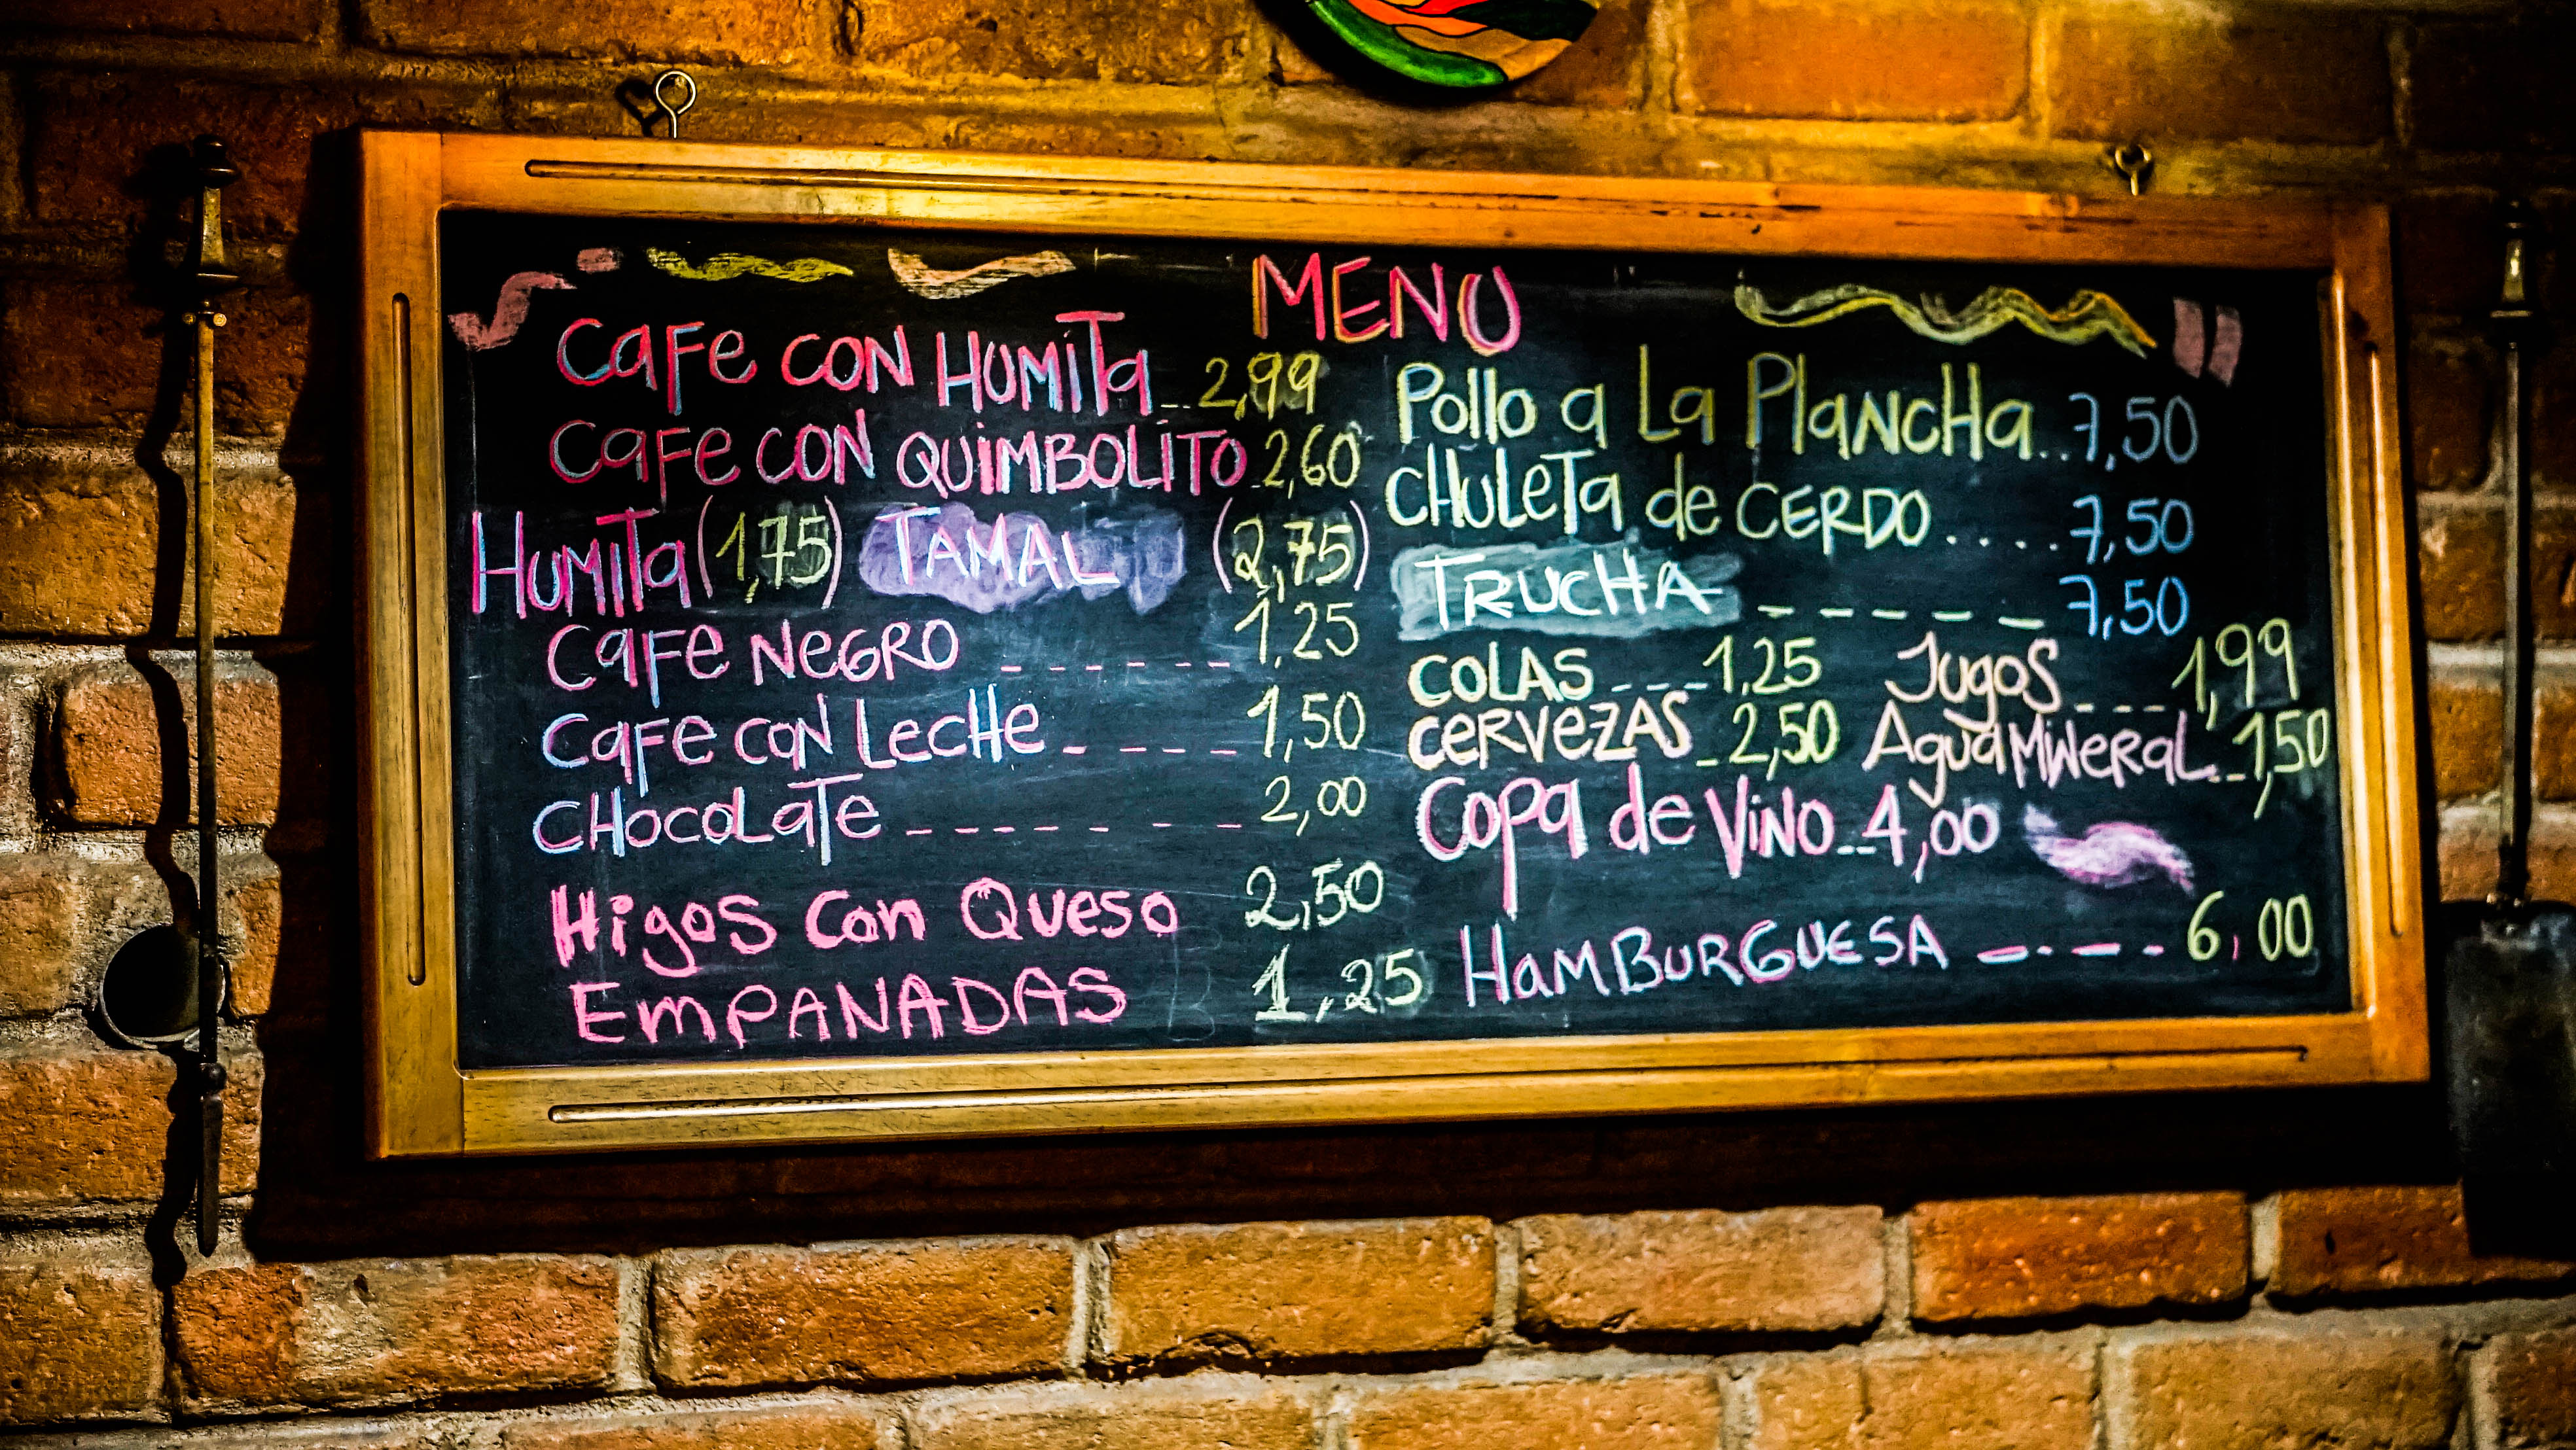 MENU
Cafe con Humita 2,99
Cafe con Quimbolito 2,60
Humita (1,75) Tamal (2,75)
Cafe Negro 1,25
Cafe con Leche 1,50
Chocolate 2,00
Higos Con Queso 2,50
EMPANADAS 1,25
Pollo a La Plancha 7,50
Chuleta de Cerdo 7,50
TRUCHA 7,50
COLAS 1,25 Jugos 1,99
CERVEZAS 2,50 Agua Mineral 1,50
Copa de Vino 4,00
HAMBURGUESA 6,00